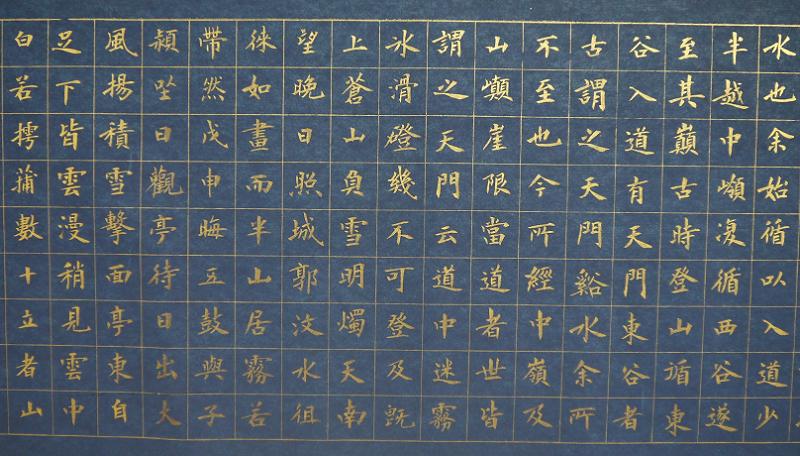 水也余始循以入道少
半越中嶺復循西谷遂
至其巔古時登山循東
谷入道有天門東谷者
古謂之天門谿水余所
不至也今所經中嶺及
山巔崖限當道者世皆
謂之天門云道中迷霧
冰滑磴幾不可登及既
上蒼山負雪明燭天南
望晚日照城郭汶水徂
徠如畫而半山居霧若
帶然戊申晦五鼓與子
潁坐日觀亭待日出大
風揚積雪擊面亭東自
足下皆雲漫稍見雲中
白若摴蒱數十立者山